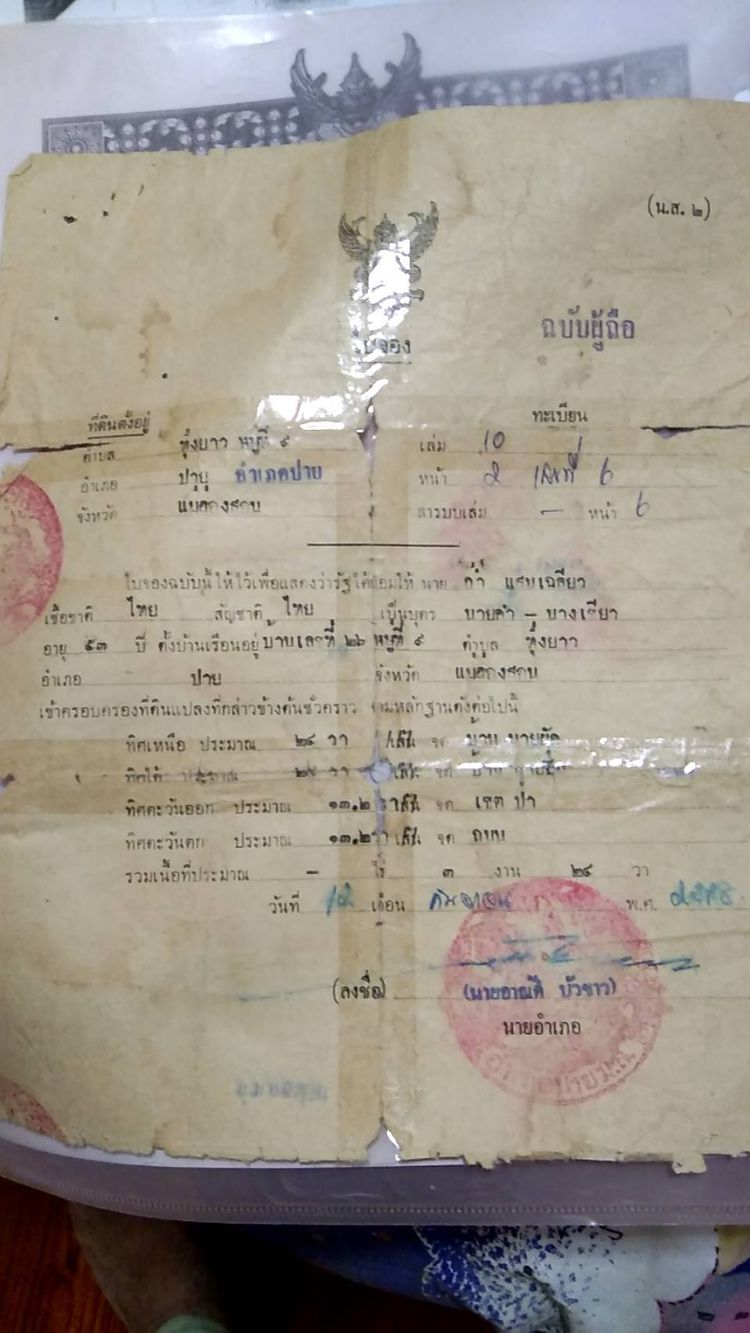 (น.ส. ๒)
ใบจอง
ฉบับผู้ถือ
ที่ดินตั้งอยู่
ทะเบียน
ตำบล ทุ่งยาว หมู่ที่ ๙
เล่ม 10
อำเภอ ปาย อำเภอปาย
หน้า 2 6
จังหวัด แม่ฮ่องสอน
สารบบเล่ม – หน้า 6
ใบจองฉบับนี้ให้ไว้เพื่อแสดงว่ารัฐได้ยอมให้ นาย คำ แสนเฉลียว
เชื้อชาติ ไทย สัญชาติ ไทย เป็นบุตร นายคำ – นางเขียว
อายุ ๕๓ ปี ตั้งบ้านเรือนอยู่ บ้านเลขที่ ๒๖ หมู่ที่ ๙ ตำบล ทุ่งยาว
อำเภอ ปาย จังหวัด แม่ฮ่องสอน
เข้าครอบครองที่ดินแปลงที่กล่าวข้างต้นชั่วคราว ตามหลักฐานดังต่อไปนี้
ทิศเหนือ ประมาณ ๒๔ วา เส้น จด บ้าน
ทิศใต้ ประมาณ ๒๔ วา เส้น จด บ้าน
ทิศตะวันออก ประมาณ ๑๓.๒ วา เส้น จด เขต ป่า
ทิศตะวันตก ประมาณ ๑๓.๒ วา เส้น จด ถนน
รวมเนื้อที่ประมาณ – ไร่ ๓ งาน ๒๔ วา
วันที่ เดือน กันยายน พ.ศ.
(ลงชื่อ)
(นายอาณดี บัวขาว)
นายอำเภอ